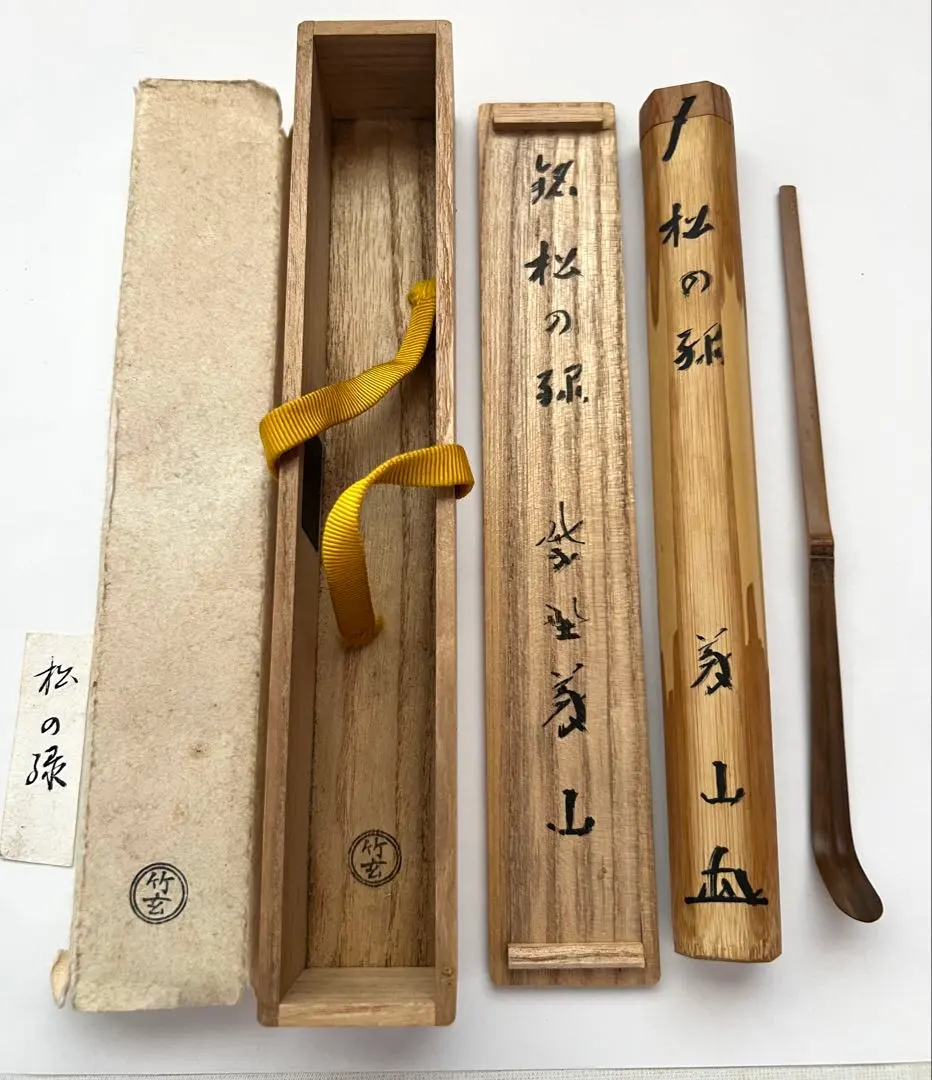 松の緑
竹玄
竹玄
銘 松の緑
紫野 義山
〆 松の緑
義山